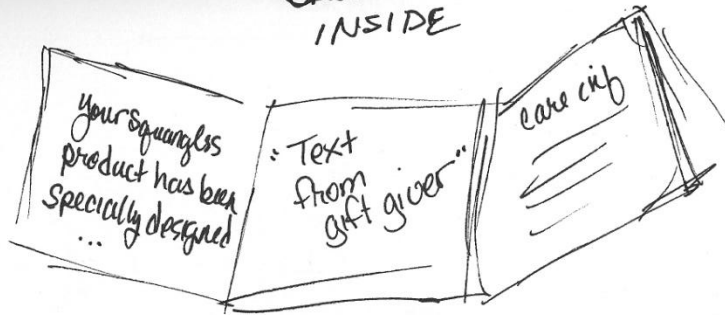 INSIDE
your squanglss
product has been
specially designed
...
"Text
from
gift giver"
care